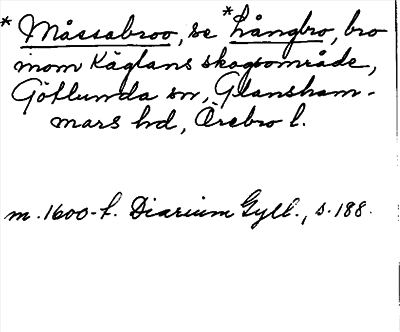 * Måssabroo, se *Långbro, bro
inom Käglans skogsområde,
Götlunda sn, Glansham-
mars hd, Örebro l.
m. 1600-t. Diarium Gyll., s. 188.